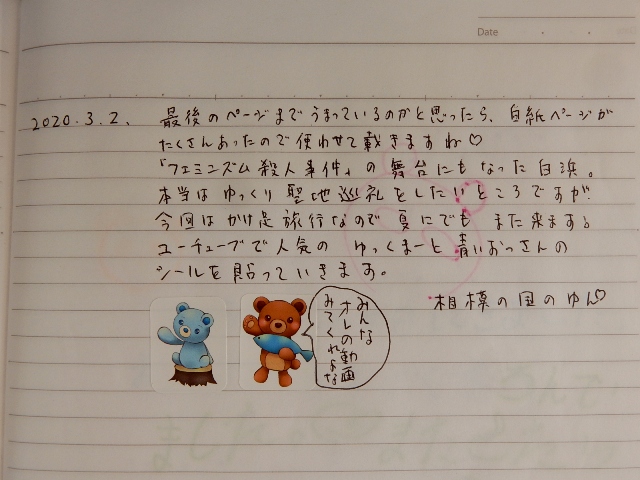 Date
2020.3.2. 最後のページまでうまっているのかと思ったら、白紙ページが
たくさんあったので使わせて戴きますね♡
「フェミニズム殺人事件」の舞台にもなった白浜。
本当はゆっくり聖地巡礼をしたいところですが
今回はかけ足旅行なので夏にでもまた来ます。
ユーチューブで人気のゆっくまーと青いおっさんの
シールを貼っていきます。
相模の国のゆん♡
みんな
オレの動画
みてくれよな